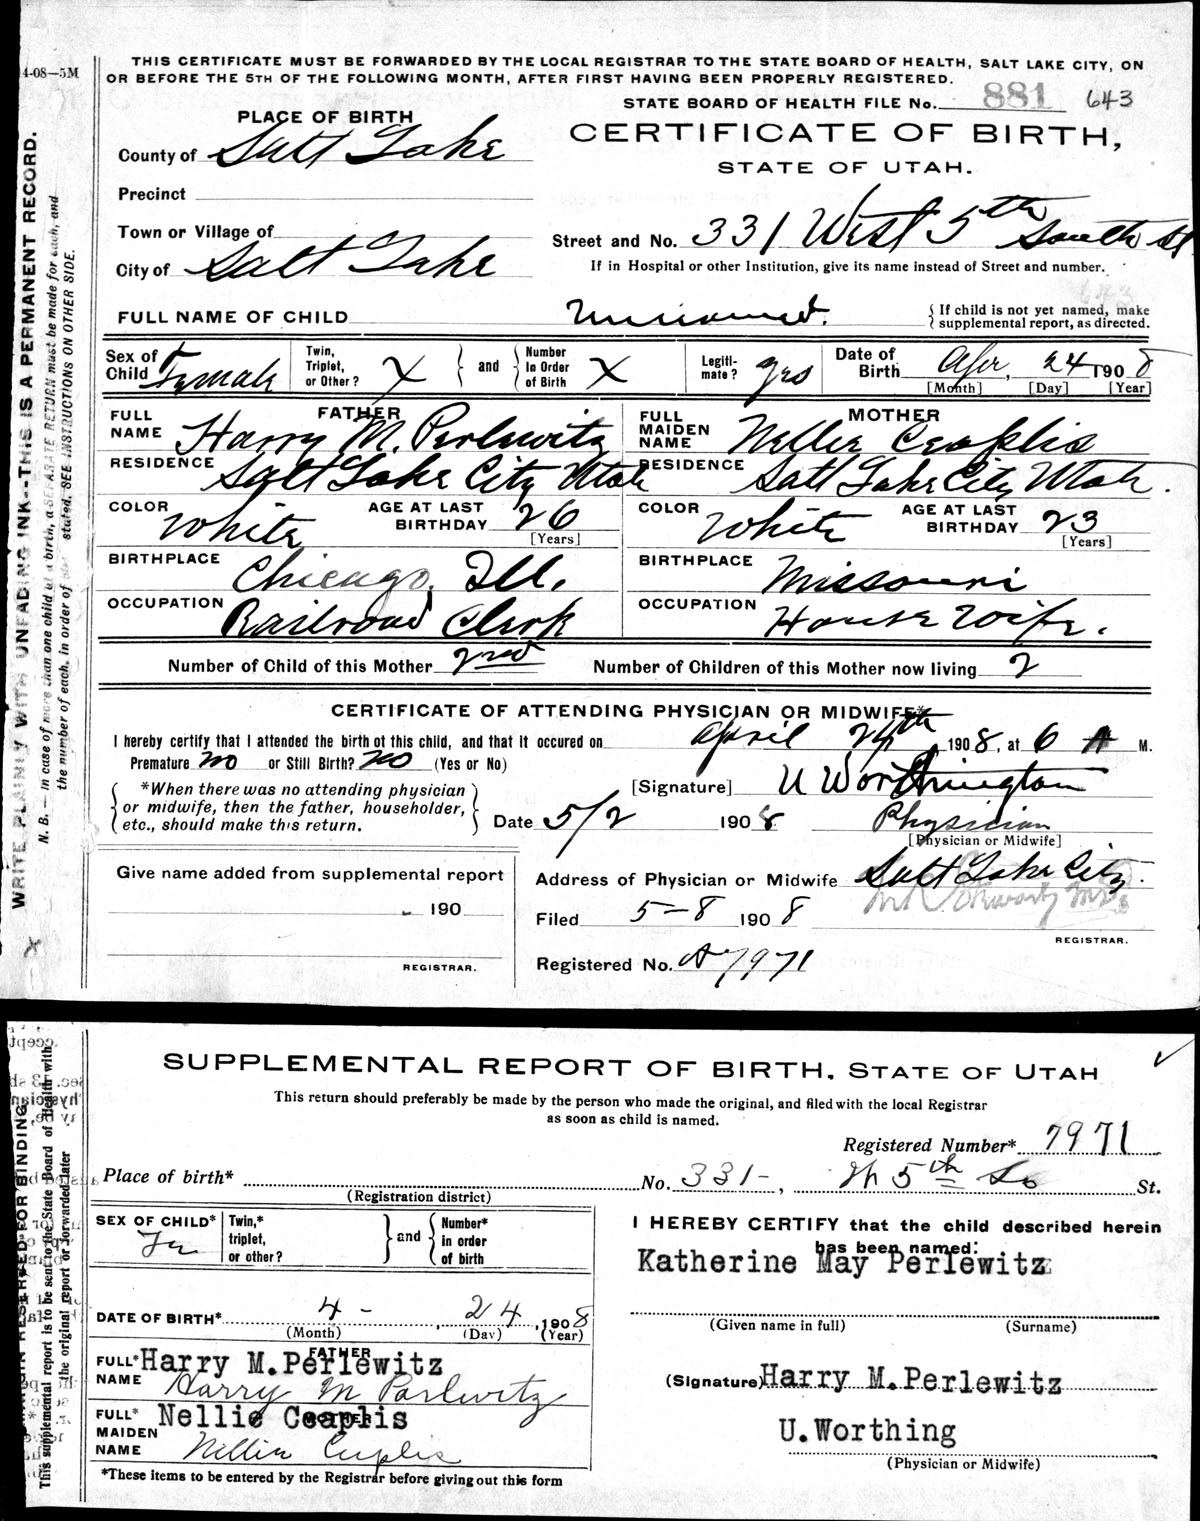 4-08—5M
THIS CERTIFICATE MUST BE FORWARDED BY THE LOCAL REGISTRAR TO THE STATE BOARD OF HEALTH, SALT LAKE CITY, ON
OR BEFORE THE 5TH OF THE FOLLOWING MONTH, AFTER FIRST HAVING BEEN PROPERLY REGISTERED.
STATE BOARD OF HEALTH FILE No. 881 643
PLACE OF BIRTH
CERTIFICATE OF BIRTH,
STATE OF UTAH.
County of Salt Lake
Precinct
Town or Village of
Street and No. 331 West 5th South St
City of Salt Lake
If in Hospital or other Institution, give its name instead of Street and number.
643
FULL NAME OF CHILD Unnamed. {If child is not yet named, make
supplemental report, as directed.
Sex of Child Female Twin, Triplet, or Other? X and Number In Order of Birth X Legiti-mate? yes Date of Birth Apr. 24 1908
[Month] [Day] [Year]
FATHER
FULL NAME Harry M. Perlewitz
RESIDENCE Salt Lake City Utah
COLOR White AGE AT LAST BIRTHDAY 26
[Years]
BIRTHPLACE Chicago, Ill.
OCCUPATION Railroad Clerk
MOTHER
FULL MAIDEN NAME Nellie Ceaplis
RESIDENCE Salt Lake City Utah.
COLOR White AGE AT LAST BIRTHDAY 23
[Years]
BIRTHPLACE Missouri
OCCUPATION House Wife.
Number of Child of this Mother 2nd Number of Children of this Mother now living 2
CERTIFICATE OF ATTENDING PHYSICIAN OR MIDWIFE*
I hereby certify that I attended the birth of this child, and that it occured on April 24th 1908, at 6 A M.
Premature no or Still Birth? no (Yes or No)
*When there was no attending physician
or midwife, then the father, householder,
etc., should make this return.
[Signature] U Worthington
Date 5/2 1908 Physician
[Physician or Midwife]
Give name added from supplemental report
190
REGISTRAR.
Address of Physician or Midwife Salt Lake City.
Filed 5-8 1908
REGISTRAR.
Registered No. A7971
WRITE PLAINLY WITH UNFADING INK--THIS IS A PERMANENT RECORD.
N. B.—In case of more than one child at a birth, a SEPARATE RETURN must be made for each, and
the number of each, in order of stated. SEE INSTRUCTIONS ON OTHER SIDE.
X
SUPPLEMENTAL REPORT OF BIRTH, STATE OF UTAH
This return should preferably be made by the person who made the original, and filed with the local Registrar
as soon as child is named.
Registered Number* 7971
Place of birth* No. 331-, W 5th So St.
(Registration district)
SEX OF CHILD* Fe Twin,* triplet, or other? and Number* in order of birth
DATE OF BIRTH* 4 - 24, 1908
(Month) (Day) (Year)
FATHER
FULL* NAME Harry M. Perlewitz
Harry M Parlewitz
MOTHER
FULL* MAIDEN NAME Nellie Ceaplis
*These items to be entered by the Registrar before giving out this form
I HEREBY CERTIFY that the child described herein
has been named:
Katherine May Perlewitz
(Given name in full) (Surname)
(Signature) Harry M. Perlewitz
U. Worthing
(Physician or Midwife)
MARGIN RESERVED FOR BINDING
This supplemental report is to be sent to the State Board of Health with
the original report or forwarded later